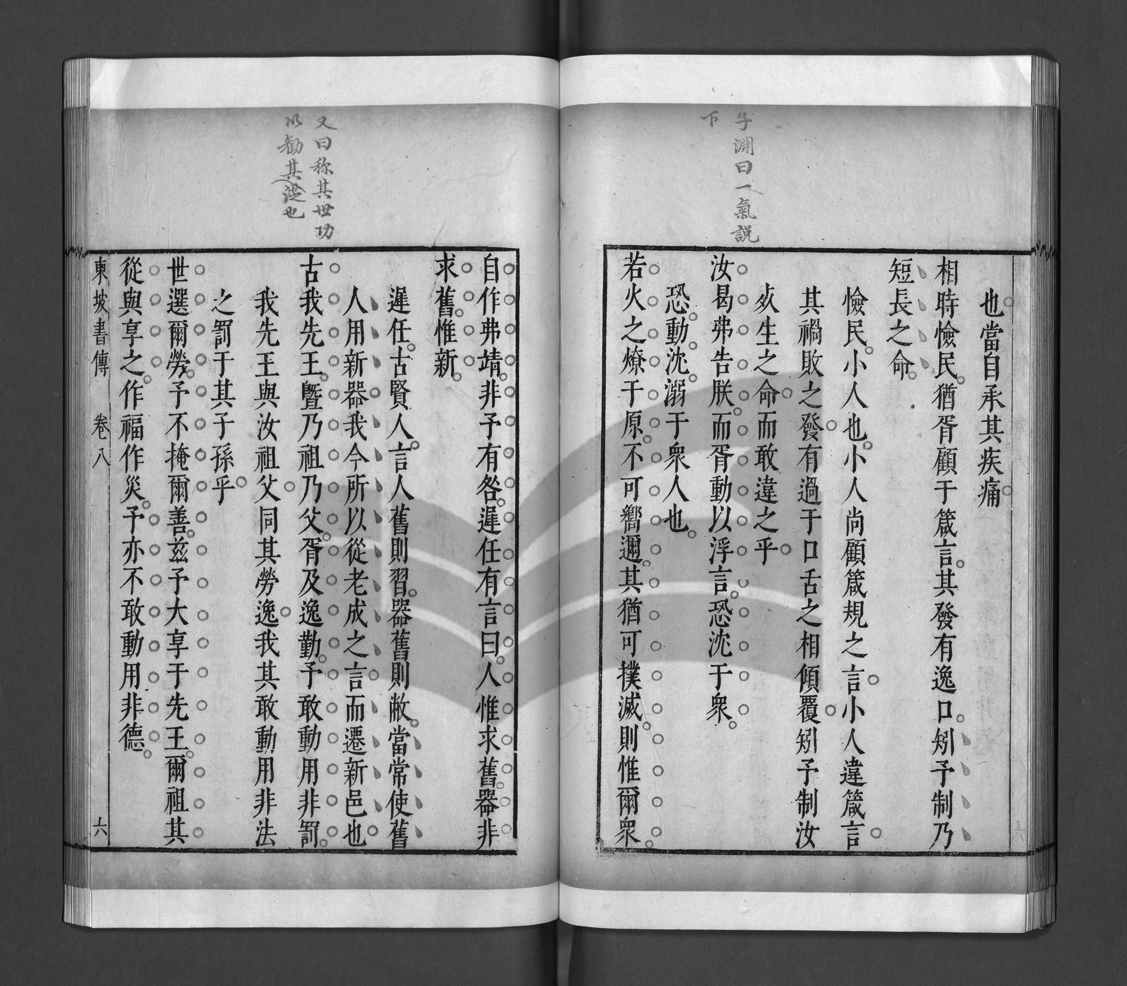 子淵曰一氣說
下
也當自承其疾痛
相時憸民猶胥顧于箴言其發有逸口矧予制乃
短長之命
憸民小人也小人尚顧箴規之言小人違箴言
其禍敗之發有過于口舌之相傾覆矧予制汝
死生之命而敢違之乎
汝曷弗告朕而胥動以浮言恐沈于衆
恐動沈溺于衆人也
若火之燎于原不可嚮邇其猶可撲滅則惟爾衆
又曰称其世功
以勸其從也
自作弗靖非予有咎遲任有言曰人惟求舊器非
求舊惟新
遲任古賢人言人舊則習器舊則敝當常使舊
人用新器我今所以從老成之言而遷新邑也
古我先王暨乃祖乃父胥及逸勤予敢動用非罰
我先王與汝祖父同其勞逸我其敢動用非法
之罰于其子孫乎
世選爾勞予不掩爾善茲予大享于先王爾祖其
從與享之作福作災予亦不敢動用非德
東坡書傳 卷八 六